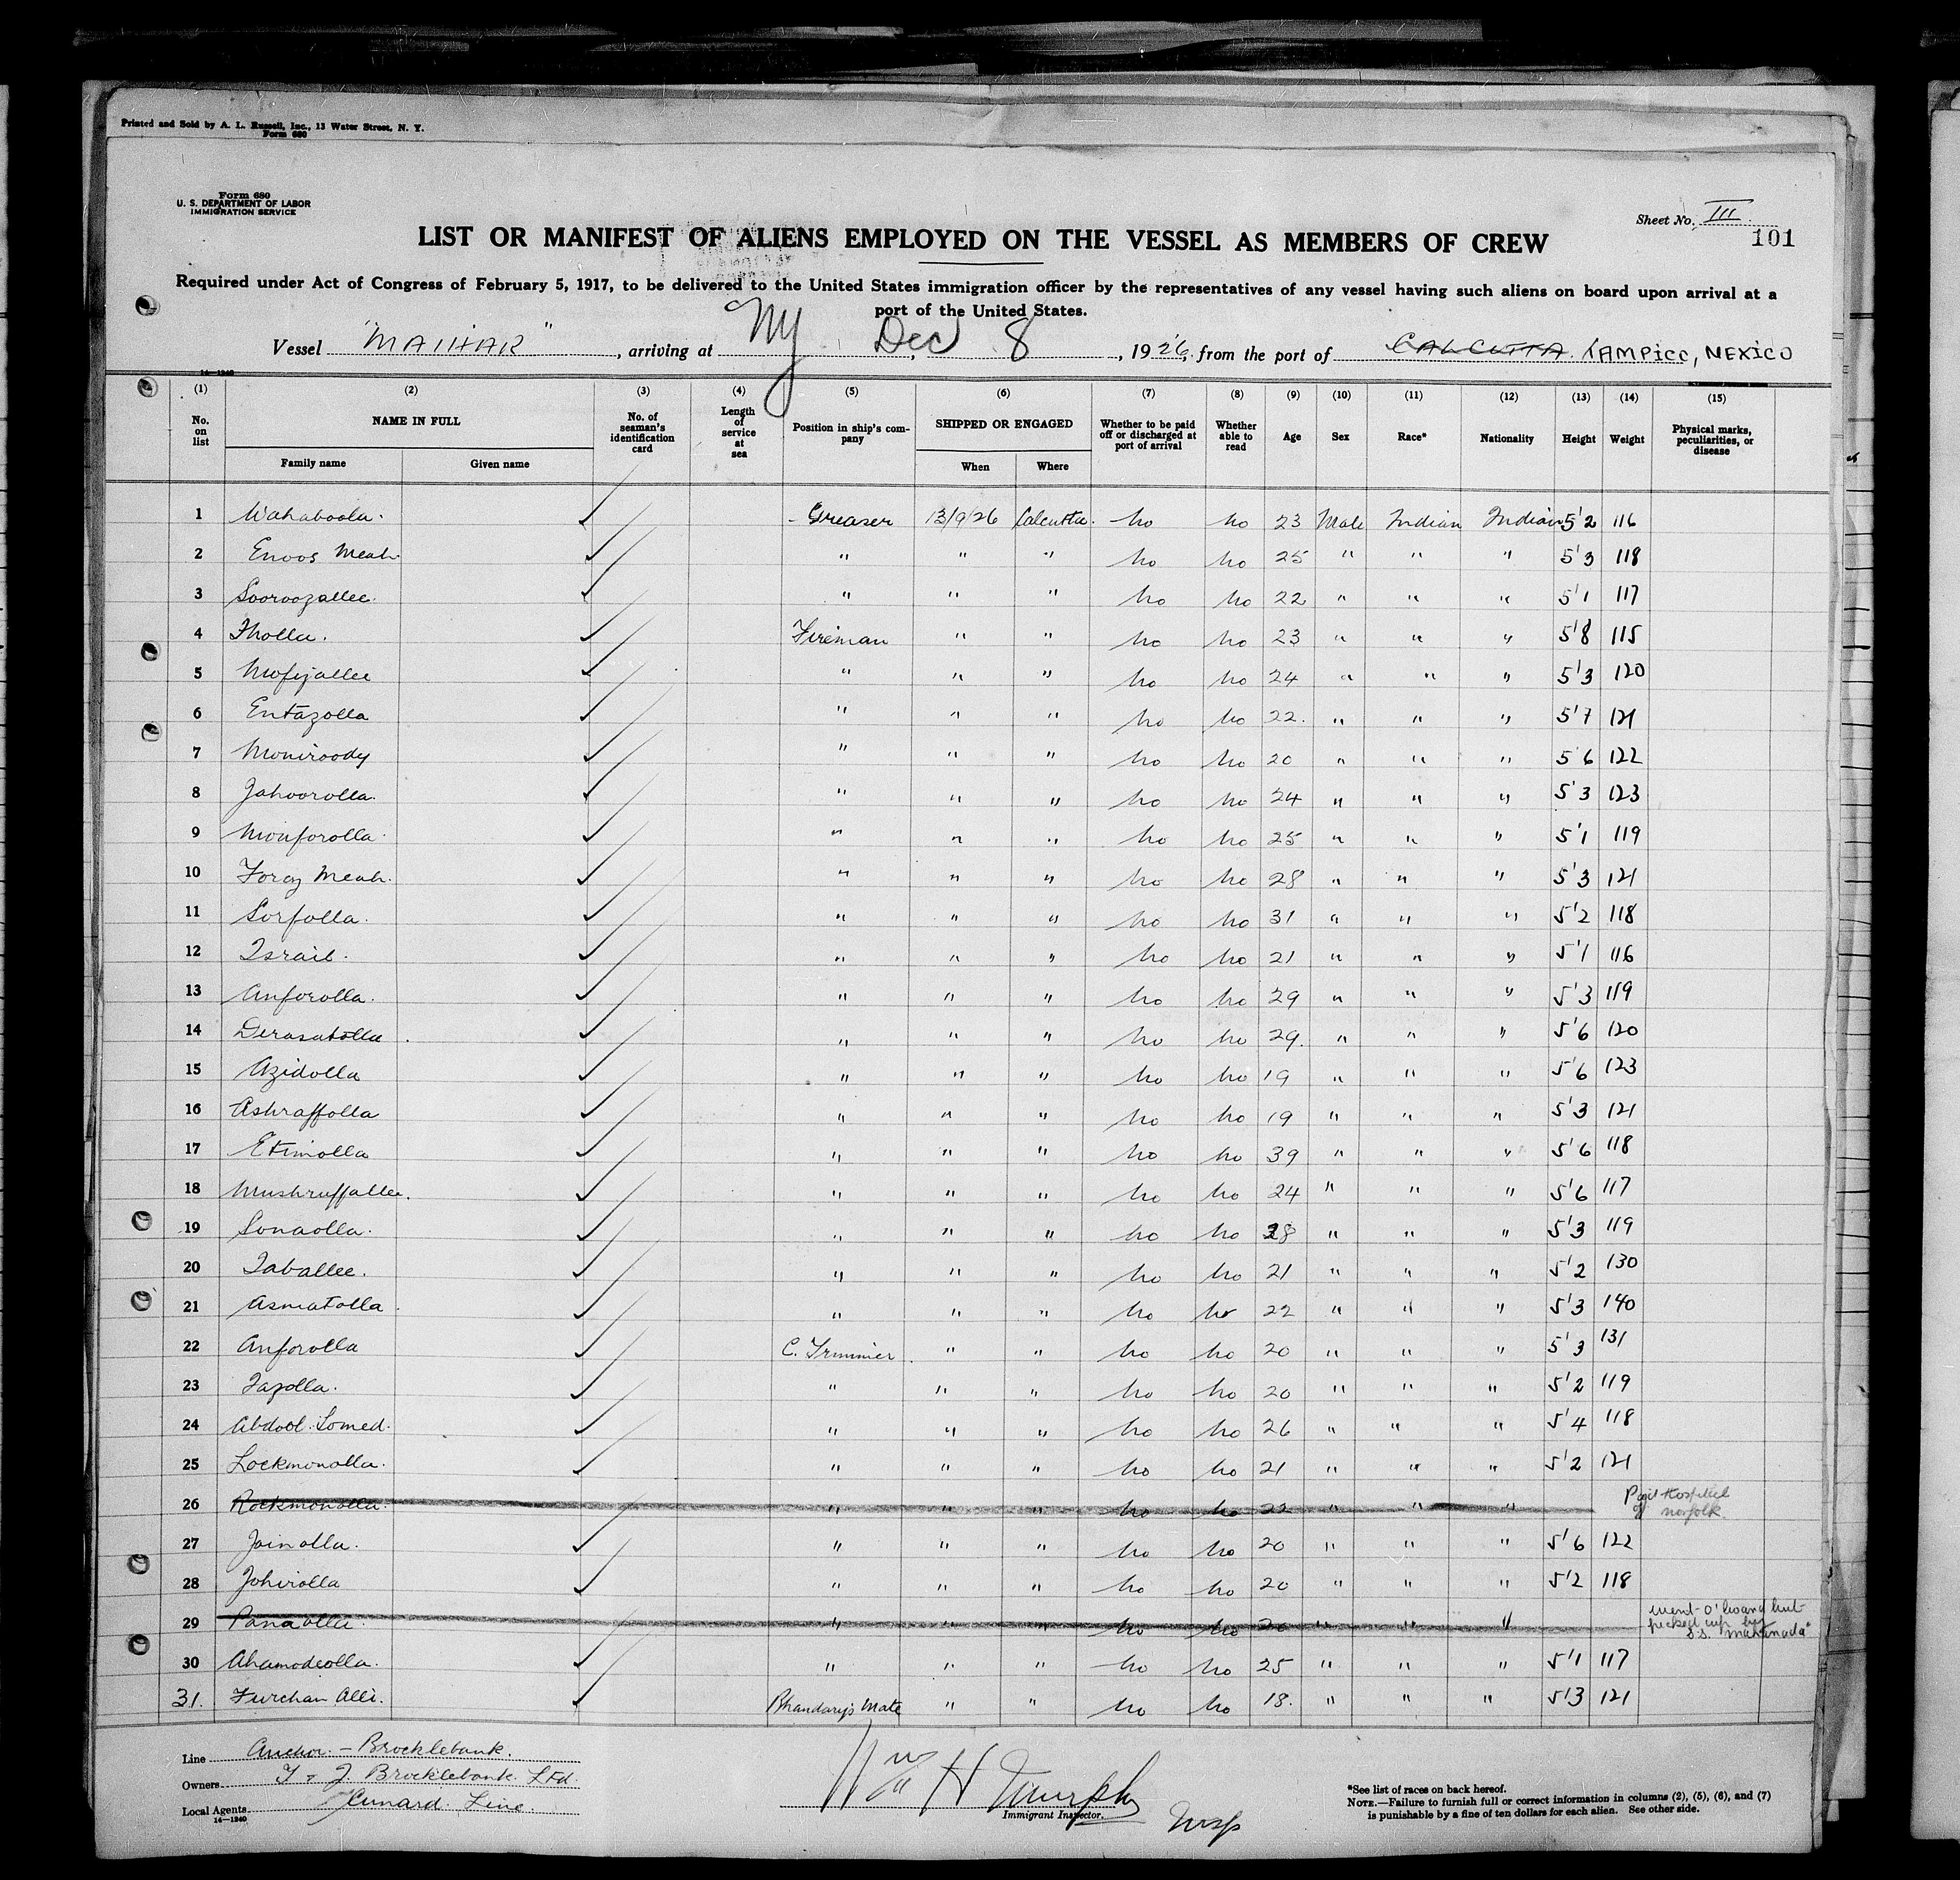 Printed and Sold by A. L. Russell, Inc., 13 Water Street, N. Y.
Form 680
Form 680
U. S. DEPARTMENT OF LABOR
IMMIGRATION SERVICE
Sheet No. III
101
LIST OR MANIFEST OF ALIENS EMPLOYED ON THE VESSEL AS MEMBERS OF CREW
Required under Act of Congress of February 5, 1917, to be delivered to the United States immigration officer by the representatives of any vessel having such aliens on board upon arrival at a
port of the United States.
Vessel "MAIHAR", arriving at NY Dec 8, 1926, from the port of CALCUTTA. TAMPICO, MEXICO
14-1240
(1) (2) (3) (4) (5) (6) (7) (8) (9) (10) (11) (12) (13) (14) (15)
No. on list NAME IN FULL Family name Given name No. of seaman's identification card Length of service at sea Position in ship's company SHIPPED OR ENGAGED When Where Whether to be paid off or discharged at port of arrival Whether able to read Age Sex Race* Nationality Height Weight Physical marks, peculiarities, or disease
1 Wahaboola. Greaser 13/9/26 Calcutta. no no 23 Male Indian Indian 5'2 116
2 Enoos Meah. " " " no no 25 " " " 5'3 118
3 Sooroozallee. " " " no no 22 " " " 5'1 117
4 Tholla. Fireman " " no no 23 " " " 5'8 115
5 Mofizallee " " " no no 24 " " " 5'3 120
6 Entazolla " " " no no 22. " " " 5'7 121
7 Moniroody " " " no no 20 " " " 5'6 122
8 Jahoorolla. " " " no no 24 " " " 5'3 123
9 Monforolla. " " " no no 25 " " " 5'1 119
10 Foraz Meah. " " " no no 28 " " " 5'3 121
11 Sorfolla. " " " no no 31 " " " 5'2 118
12 Israil. " " " no no 21 " " " 5'1 116
13 Anforolla. " " " no no 29 " " " 5'3 119
14 Derasatolla. " " " no no 29. " " " 5'6 120
15 Azidolla " " " no no 19 " " " 5'6 123
16 Ashraffolla " " " no no 19 " " " 5'3 121
17 Etimolla " " " no no 39 " " " 5'6 118
18 Mushruffallee. " " " no no 24 " " " 5'6 117
19 Sonaolla. " " " no no 38 " " " 5'3 119
20 Taballee. " " " no no 21 " " " 5'2 130
21 Asmatolla. " " " no no 22 " " " 5'3 140
22 Anforolla C. Trimmer. " " no no 20 " " " 5'3 131
23 Fazolla. " " " no no 20 " " " 5'2 119
24 Abdool Somed. " " " no no 26 " " " 5'4 118
25 Lockmonolla. " " " no no 21 " " " 5'2 121
26 Rockmonolla. " " " no no 22 " " " Hospital Norfolk.
27 Joinolla. " " " no no 20 " " " 5'6 122
28 Johirolla " " " no no 20 " " " 5'2 118
29 Panaolla. " " " no no 20 " " " went o'board but picked up by S.S. "Mahanada"
30 Ahamodeolla. " " " no no 25 " " " 5'1 117
31. Furchan Alli. Bhandary's Mate " " no no 18. " " " 5'3 121
Line Anchor - Brocklebank.
Owners T & J Brocklebank Ltd.
Local Agents Cunard Line.
14-1240
Wm H Murphy
Immigrant Inspector. Insp
*See list of races on back hereof.
NOTE.—Failure to furnish full or correct information in columns (2), (5), (6), and (7)
is punishable by a fine of ten dollars for each alien. See other side.